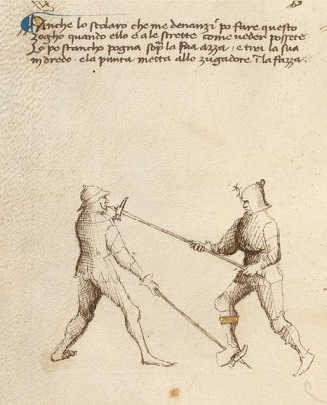 Anche lo scolaro che me denanzi po fare questo
zogho quando ello è a le strette come ueder possete
Lo pe stancho pogna sopra la sua azza / e tira la sua
indredo · e la punta metta allo zugadore in la fazza·